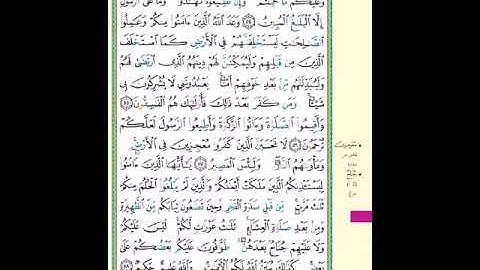 وَعَلَيْكُم مَّا حُمِّلْتُمْ ۖ وَإِن تُطِيعُوهُ تَهْتَدُوا۟ ۚ وَمَا عَلَى ٱلرَّسُولِ
إِلَّا ٱلْبَلَٰغُ ٱلْمُبِينُ ﴿٥٤﴾ وَعَدَ ٱللَّهُ ٱلَّذِينَ ءَامَنُوا۟ مِنكُمْ وَعَمِلُوا۟
ٱلصَّٰلِحَٰتِ لَيَسْتَخْلِفَنَّهُمْ فِى ٱلْأَرْضِ كَمَا ٱسْتَخْلَفَ
ٱلَّذِينَ مِن قَبْلِهِمْ وَلَيُمَكِّنَنَّ لَهُمْ دِينَهُمُ ٱلَّذِى ٱرْتَضَىٰ لَهُمْ
وَلَيُبَدِّلَنَّهُم مِّنۢ بَعْدِ خَوْفِهِمْ أَمْنًا ۚ يَعْبُدُونَنِى لَا يُشْرِكُونَ بِى
شَيْـًٔا ۚ وَمَن كَفَرَ بَعْدَ ذَٰلِكَ فَأُو۟لَٰٓئِكَ هُمُ ٱلْفَٰسِقُونَ ﴿٥٥﴾
وَأَقِيمُوا۟ ٱلصَّلَوٰةَ وَءَاتُوا۟ ٱلزَّكَوٰةَ وَأَطِيعُوا۟ ٱلرَّسُولَ لَعَلَّكُمْ
تُرْحَمُونَ ﴿٥٦﴾ لَا تَحْسَبَنَّ ٱلَّذِينَ كَفَرُوا۟ مُعْجِزِينَ فِى ٱلْأَرْضِ ۚ
وَمَأْوَىٰهُمُ ٱلنَّارُ ۖ وَلَبِئْسَ ٱلْمَصِيرُ ﴿٥٧﴾ يَٰٓأَيُّهَا ٱلَّذِينَ ءَامَنُوا۟
لِيَسْتَـْٔذِنكُمُ ٱلَّذِينَ مَلَكَتْ أَيْمَٰنُكُمْ وَٱلَّذِينَ لَمْ يَبْلُغُوا۟ ٱلْحُلُمَ مِنكُمْ
ثَلَٰثَ مَرَّٰتٍ ۚ مِّن قَبْلِ صَلَوٰةِ ٱلْفَجْرِ وَحِينَ تَضَعُونَ ثِيَابَكُم مِّنَ ٱلظَّهِيرَةِ
وَمِنۢ بَعْدِ صَلَوٰةِ ٱلْعِشَآءِ ۚ ثَلَٰثُ عَوْرَٰتٍ لَّكُمْ ۚ لَيْسَ عَلَيْكُمْ
وَلَا عَلَيْهِمْ جُنَاحٌۢ بَعْدَهُنَّ ۚ طَوَّٰفُونَ عَلَيْكُم بَعْضُكُمْ عَلَىٰ
بَعْضٍ ۚ كَذَٰلِكَ يُبَيِّنُ ٱللَّهُ لَكُمُ ٱلْءَايَٰتِ ۗ وَٱللَّهُ عَلِيمٌ حَكِيمٌ ﴿٥٨﴾